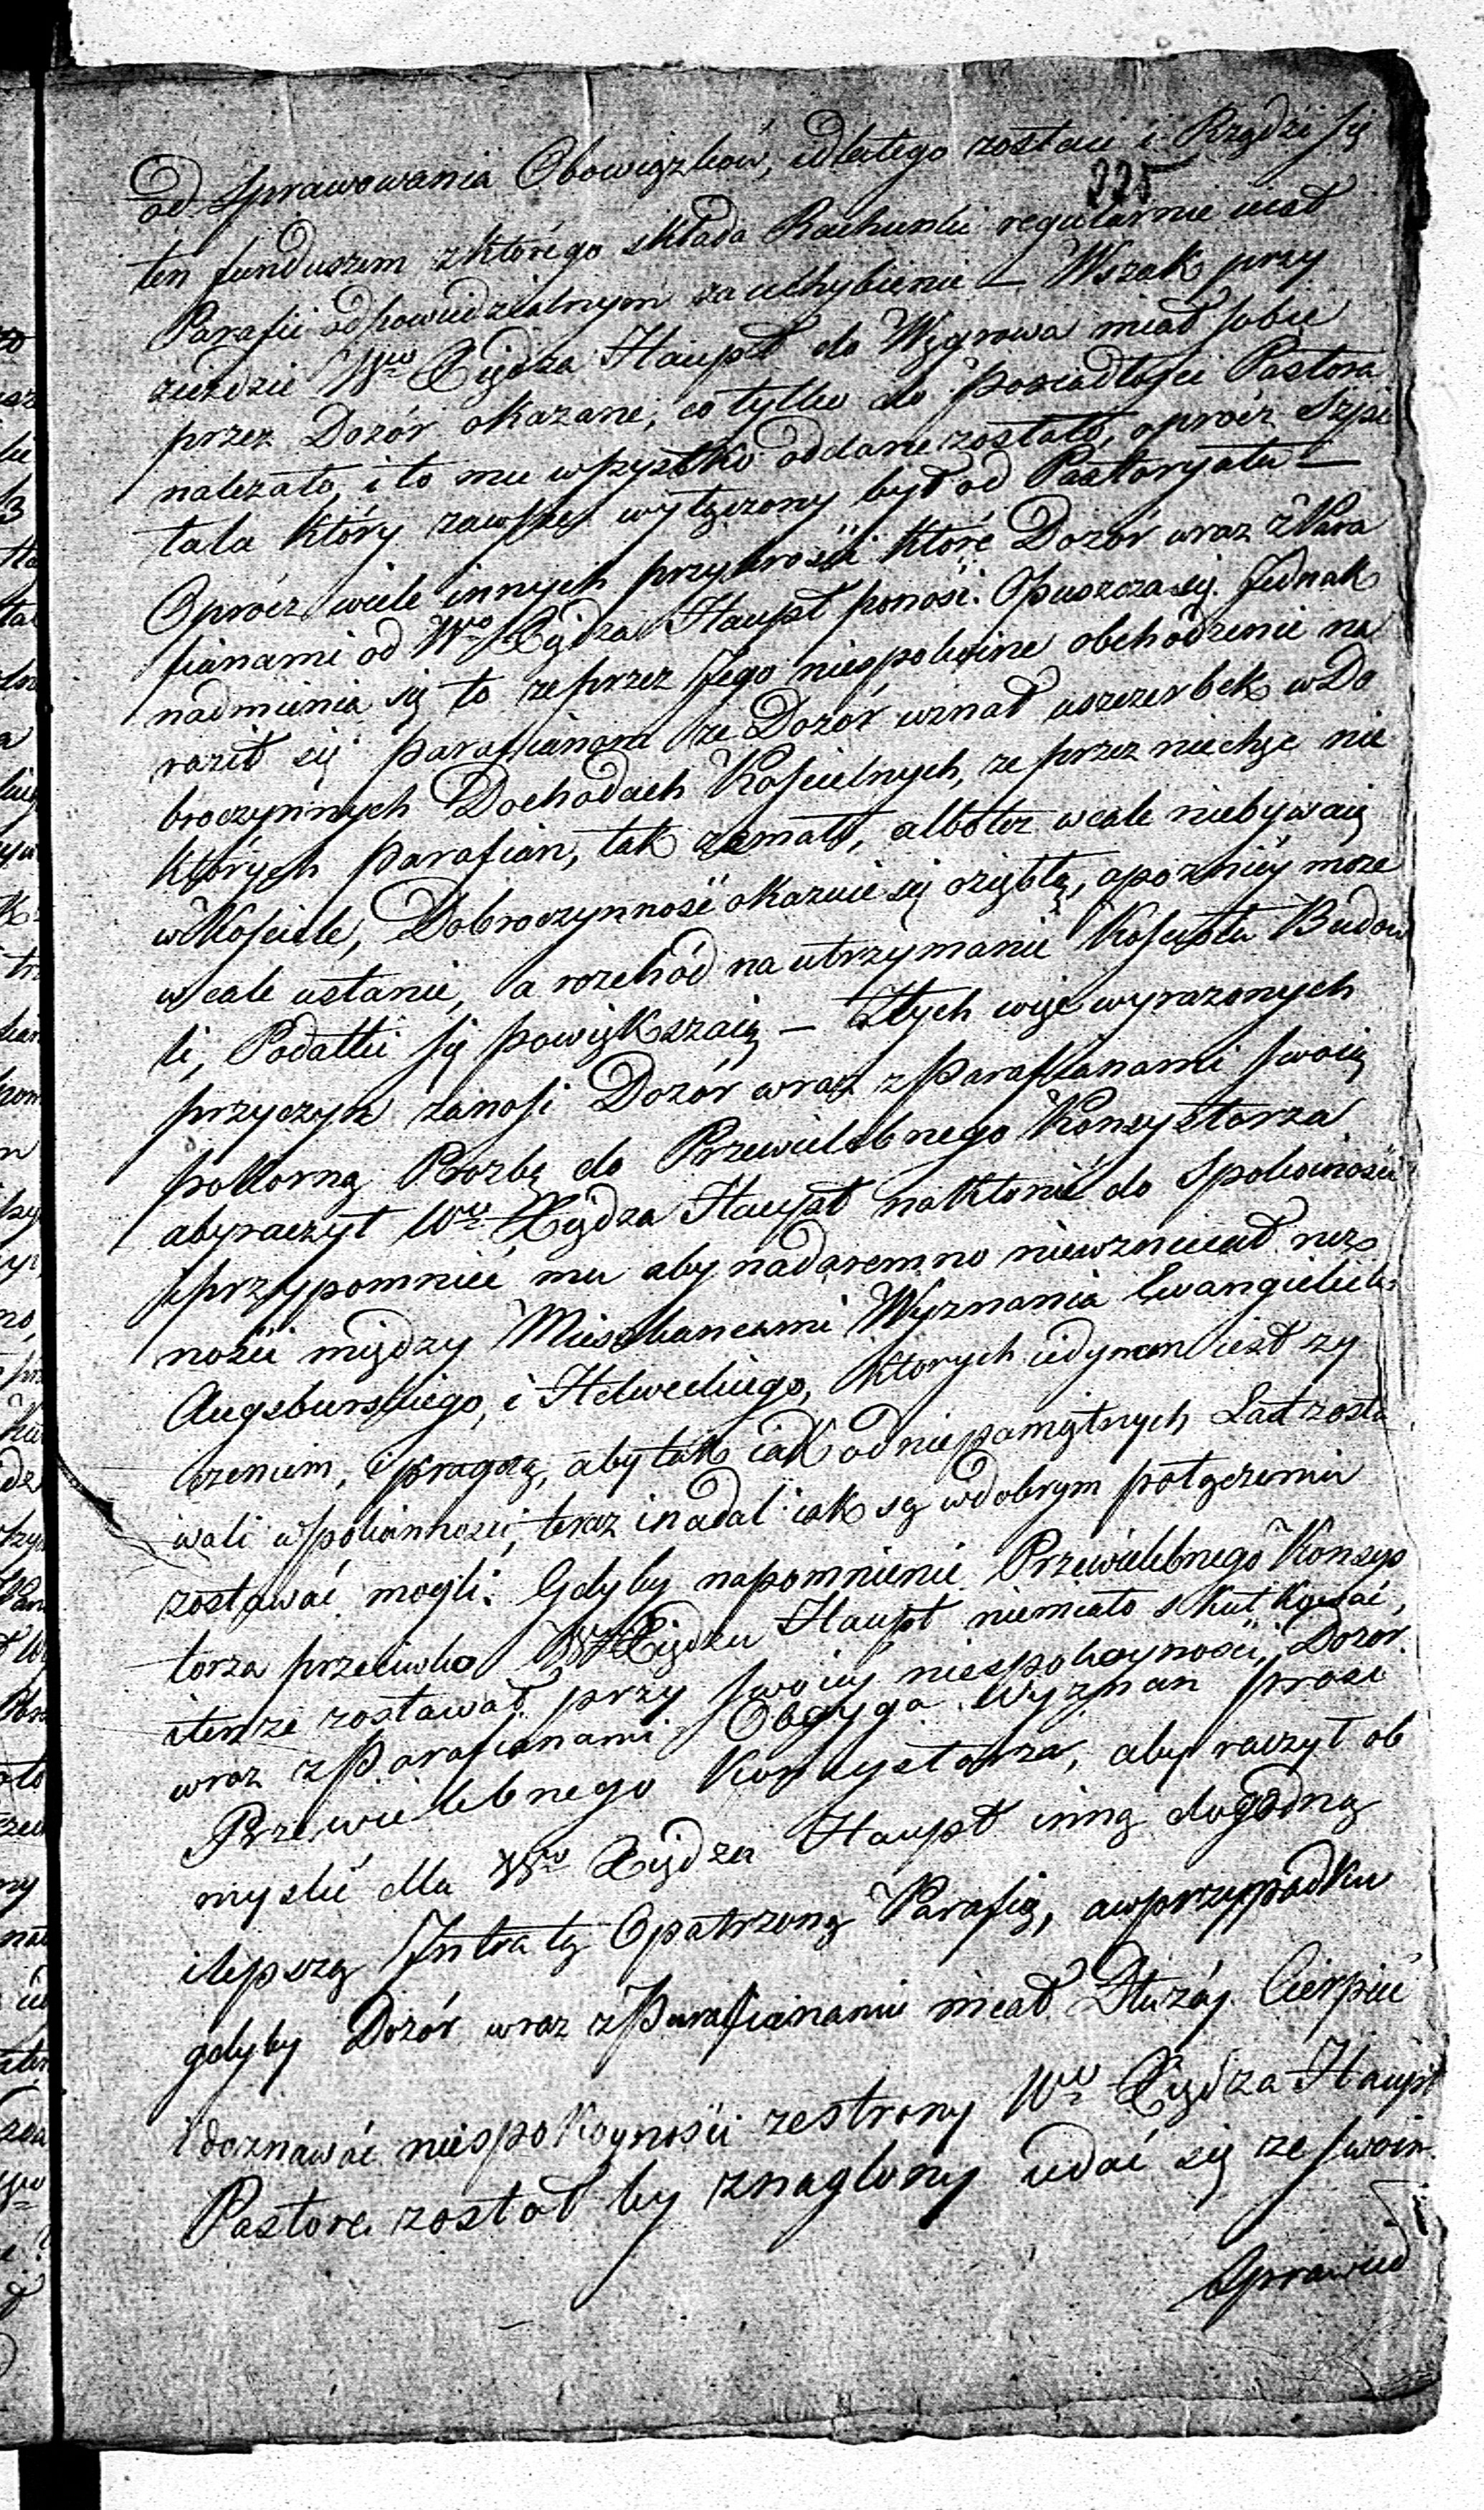 225
od sprawowania Obowiązków, idlatego zostaie i Rządzi się
ten funduszem zktórego składa Rachunki regularnie iest
Parafii odpowiedzialnym za uchybienie — Wszak przy
zieździe Wgo Xiędza Haupt do Węgrowa miał sobie
przez Dozór okazane, co tylko do posiadłości Pastora
należało, i to mu wszystko oddane zostało, oprócz Szpi
tala który zawsze wyłączony był od Pastoryatu —
Oprócz wiele innych przykrości które Dozór wraz z Para
fianami od Wgo Xiędza Haupt ponosi. Opuszcza się. Jednak
nadmienia się to że przez Jego niespokoine obchodzenie na
raził się parafianom że Dozór uznał uszczerbek w Do
broczynnych Dochodach Kościelnych, że przez niechęc nie
których parafian, tak zamało, albotez wcale niebywaią
w Kościele, Dobroczynność okazuie się oziębłą, apozniéy może
wcale ustanie, a rozchód na utrzymanie Kościoła Budow
li, Podatki się powiększaią — Ztych więc wyrażonych
przyczyn zanosi Dozór wraz z Parafianami swoią
pokorną Prozbę do Przewielebnego Konsystorza
aby raczył Wgo Xiędza Haupt nakłonić do spokoiności
i przypomnieć mu aby nadaremno niewzniecał nież
ności między Mieszkancami Wyznania Ewangielicko
Augsburskiego, i Helweckiego, których iedynem iest ży
czeniem, i pragną, aby tak iak od niepamiętnych Lat zosta
wali w spokoiności, teraz i nadal iak są wdobrym połączeniu
zostawać mogli. Gdyby napomnienie Przewielebnego Konsys
torza przeciwko Wmu Xiędzu Haupt niemiało skutkować,
i tenże zostawał przy swoiéy niespokoyności, Dozór
wraz z Parafianami Obóyga Wyznan prosi
Przewielebnego Konsystorza, aby raczył ob
myslić dla Wgo Xiędza Haupt inną dogodną
ilepszą Intratą Opatrzoną Parafią, awprzypadku
gdyby Dozór wraz z Parafianami miał Dłużéy Cierpieć
i doznawać niespokoyności ze strony Wgo Xiędza Haupt
Pastora został by znaglony udać się ze swoim
Sprawied